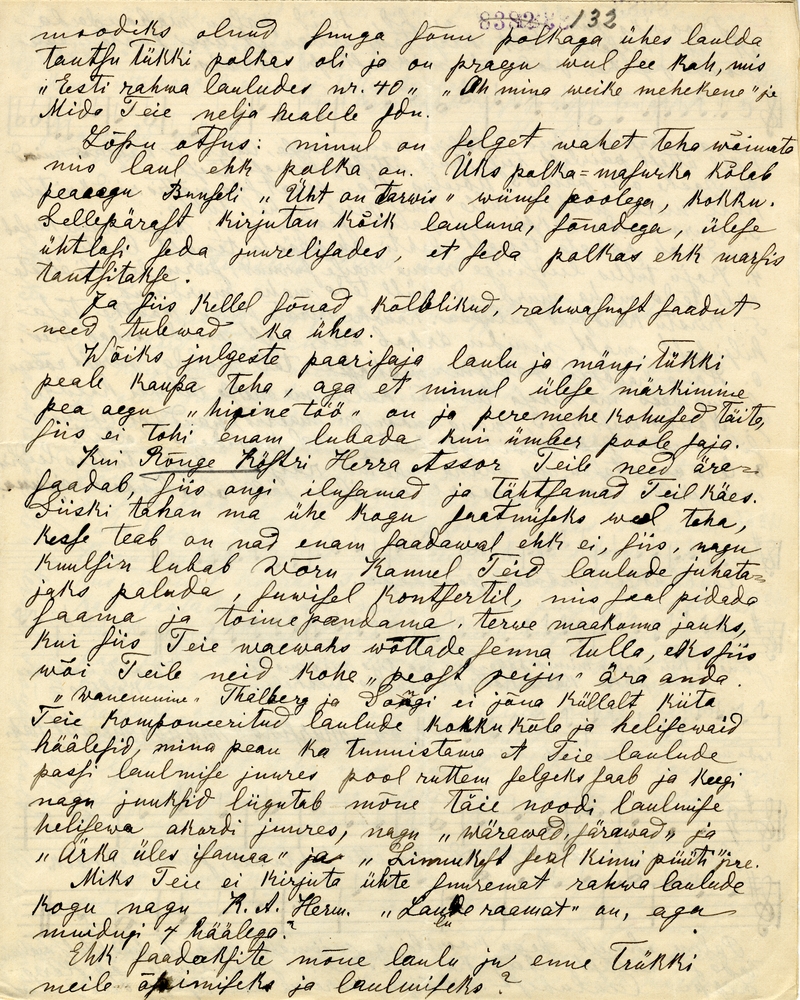 132
moodiks olnud suuga sõnu polkaga ühes laulda
tantsu tükki polkas oli ja on praegu wel see kah, mis
„Eesti rahwa lauludes nr. 40" „Oh mina weike mehekene" je
Mida Teie nelja healele sdn.
Lõpu otsus: minul on selget wahet teha wõimata
mis laul ehk polka on. Üks polka=masurka kõlab
peaaegu Punscli „Üht on tarwis" wiimse poolega, kokku.
Sellepärast kirjutan kõik lauluna, sõnadega, ülese
ühtlasi seda juurelisades, et seda polkas ehk marsis
tantsitakse.
Ja siis kellel sõnad kõlblikud, rahwasuust saadut
need tulewad ka ühes.
Wõiks julgeste paarisaja laulu ja mängi tükki
peale kaupa teha, aga et minul ülese märkimine
pea aegu „hiline töö" on ja peremehe kohused täita,
siis ei tohi enam lubada kui ümber poole saja.
Kui Rõuge Köstri Herra Assor Teile need ära=
saadab, siis ongi ilusamad ja tähtsamad Teil käes.
Siiski tahan ma ühe kogu saatmiseks weel teha,
kesse teab on nad enam saadawal ehk ei, siis, nagu
kuulsin lubab Wõru Kannel Teid laulude juhata=
jaks paluda, suwisel kontsertil, mis seal pidada
saama ja toimepandama, terwe maakonna jauks,
kui siis Teie waewaks wõttade senna tulla, eks siis
wõi Teile neid kohe „peost peiju" ära anda.
„Wanemuine" Thalberg ja Dougi ei jõna küllalt kiita
Teie komponeeritud laulude kokku kõla ja helisewaid
häälesid, mina pean ka tunnistama et Teie laulude
passi laulmise juures pool ruttem selgeks saab ja keegi
nagu juuksid liigutab mõne täie noodi laulmise
helisewa akordi juures, nagu „wärawad, järawad" ja
„Ärka üles isamaa" ja „Linnukest seal kinni püüti" jne.
Miks Teie ei kirjuta ühte suuremat rahwa laulude
kogu nagu K. A. Herm. „Laulu raamat" on, aga
muidugi 4 häälega?
Ehk saadaksite mõne laulu ju enne trükki
meile õpimiseks ja laulmiseks?